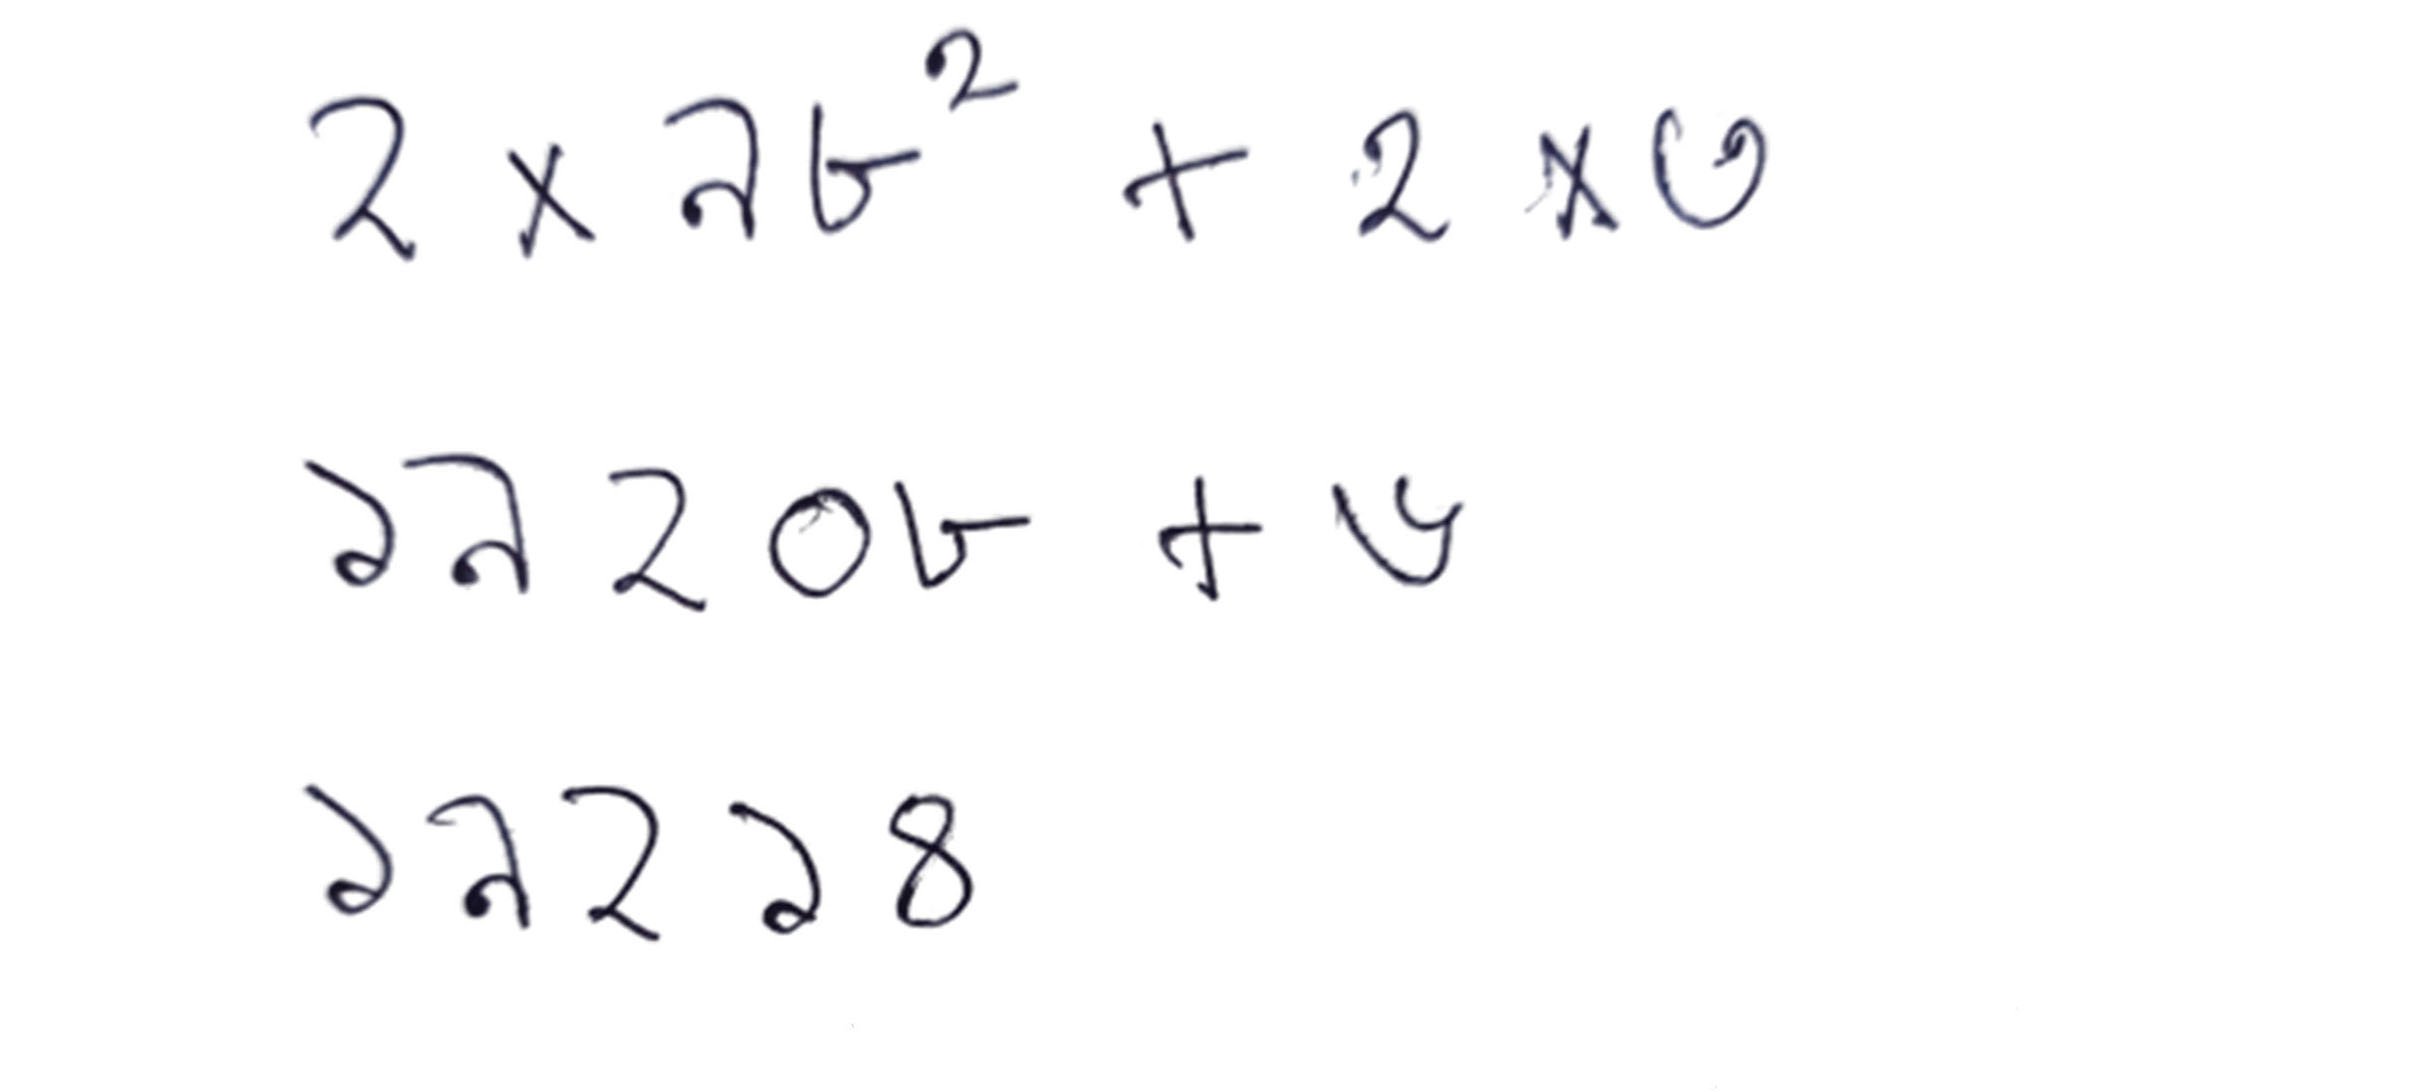 ২ × ৯৮² + ২ × ৩
১৯২০৮ + ৬
১৯২১৪